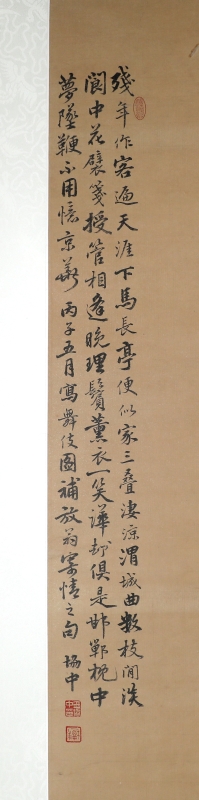 殘年作客遍天涯下馬長亭便似家三疊淒涼渭城曲數枝閒淡
閬中花襞箋授管相逢晚理鬢薰衣一笑譁却俱是邯鄲枕中
夢墜鞭不用憶京華 丙子五月寫舞伎圖補放翁寄情之句 中